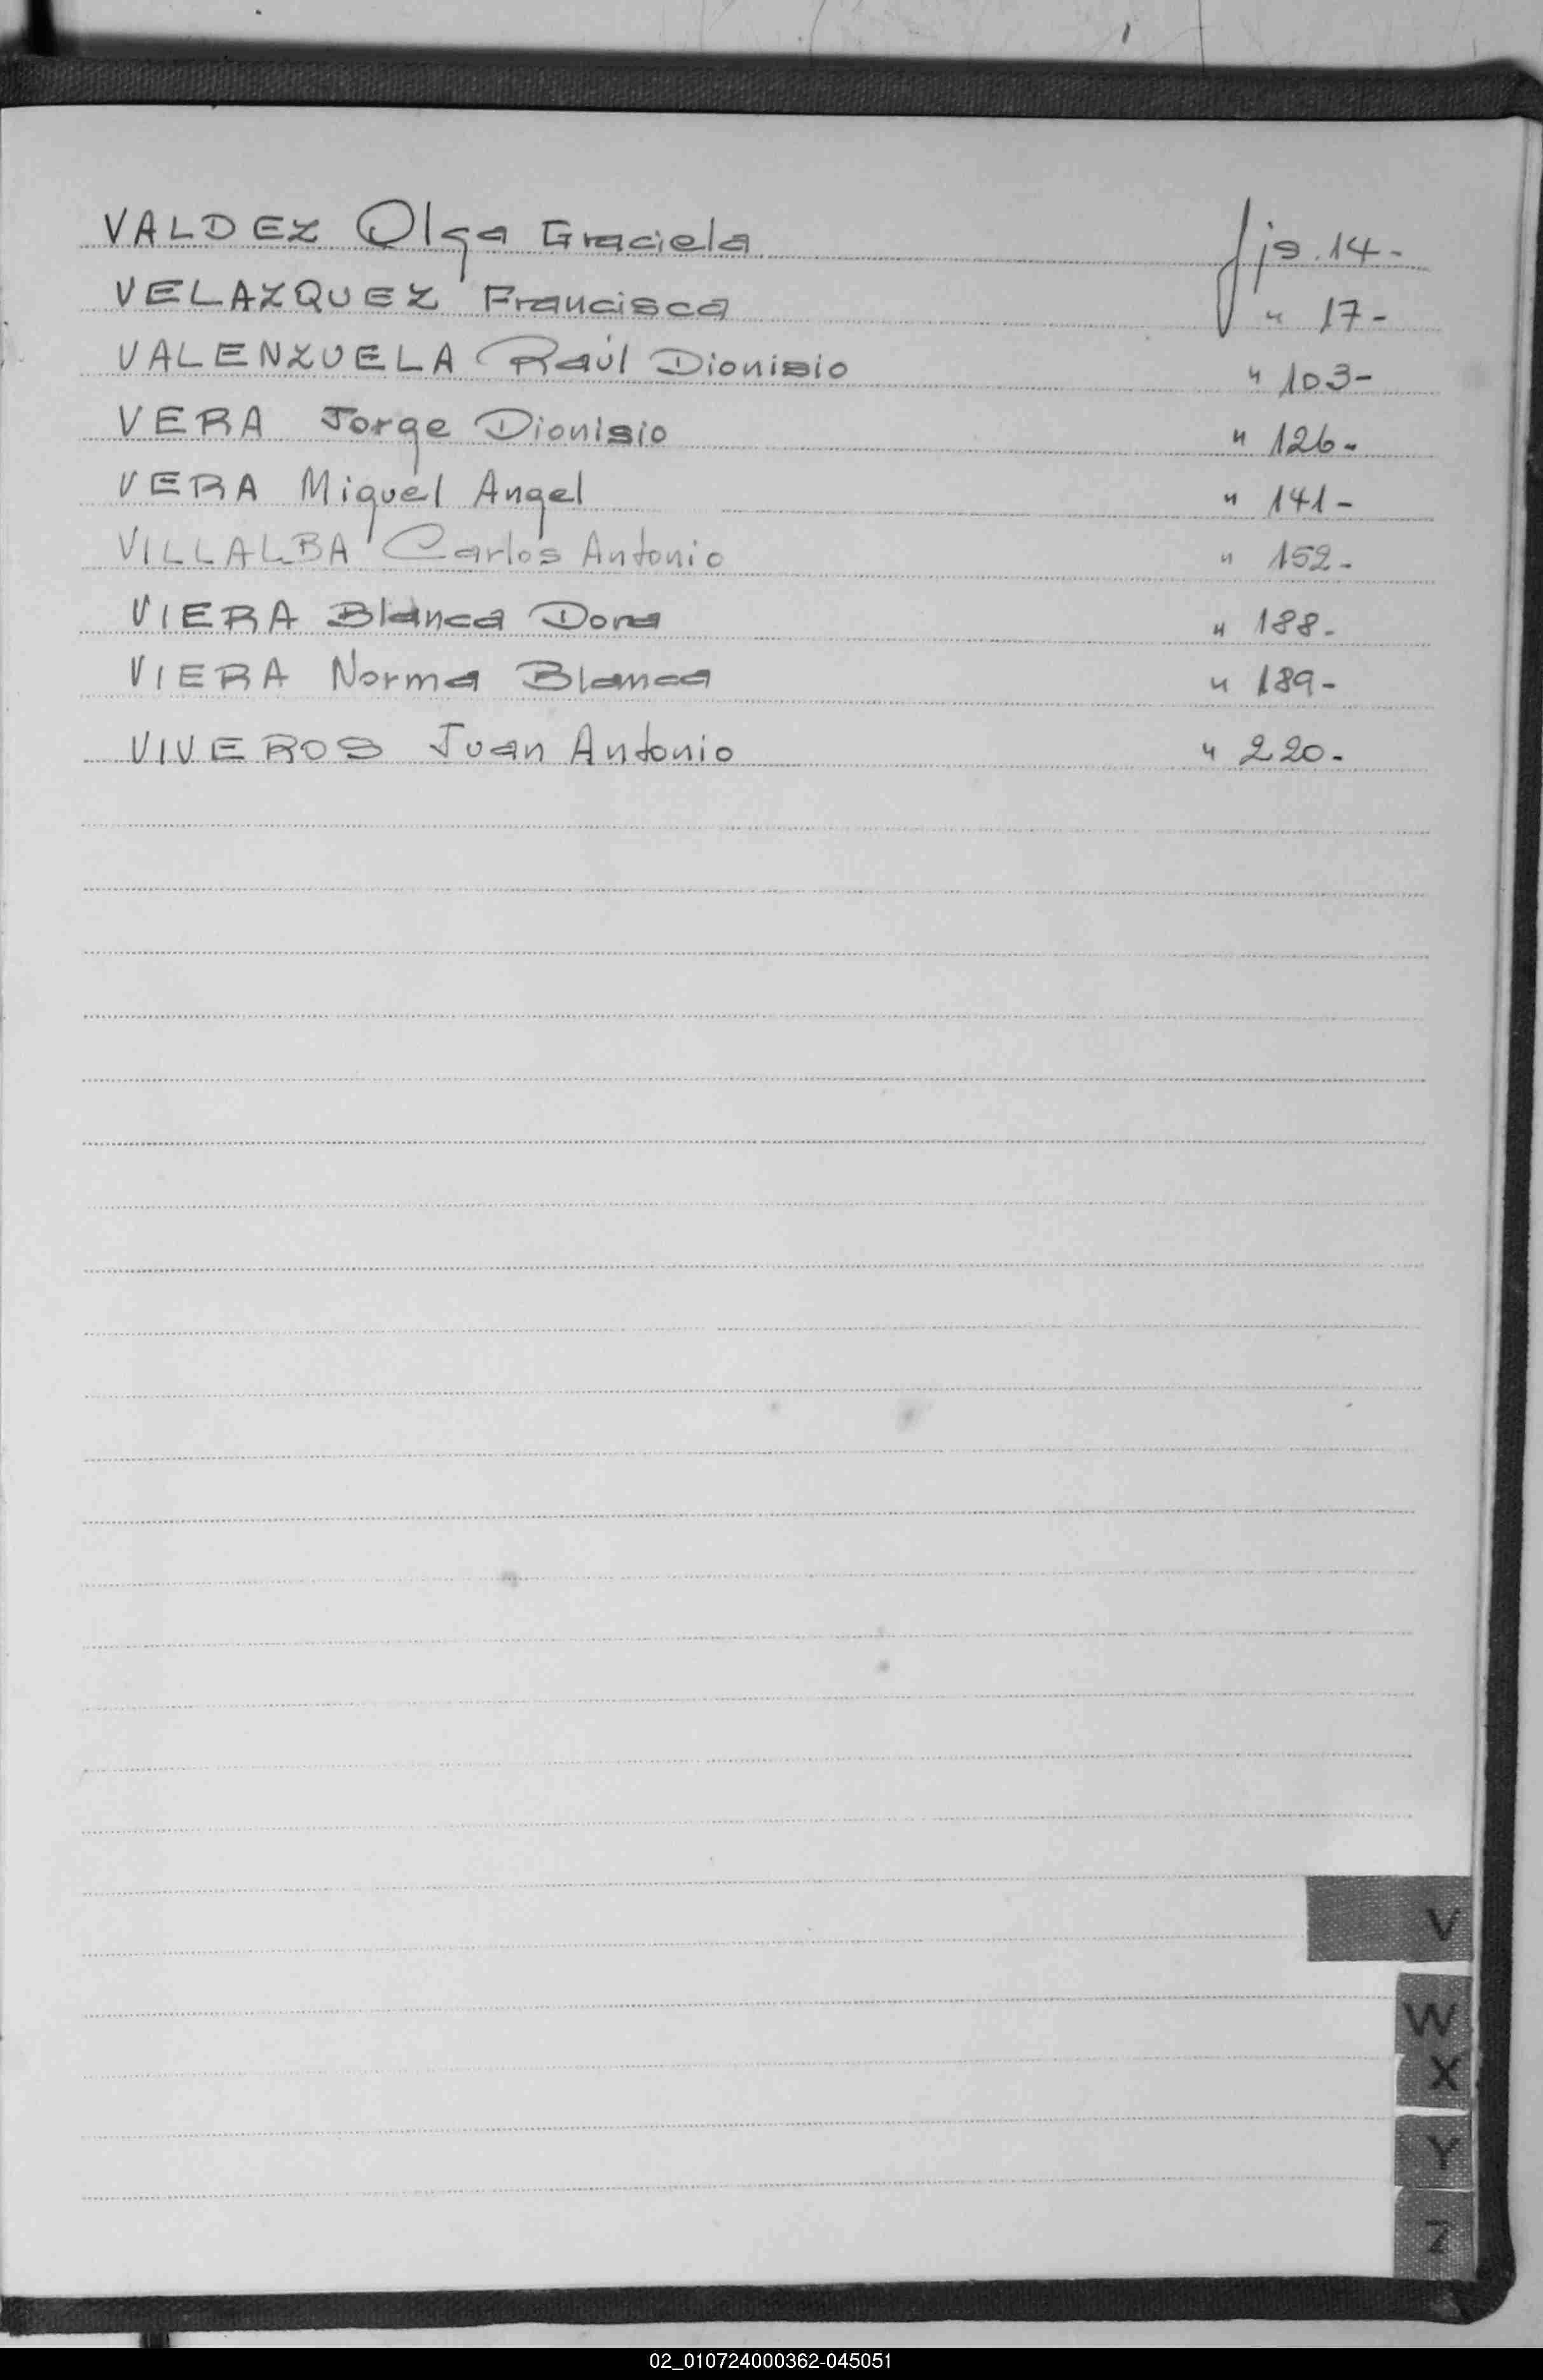 VALDEZ Olga Graciela fjs. 14-
VELAZQUEZ Francisca " 17-
VALENZUELA Raúl Dionisio " 103-
VERA Jorge Dionisio " 126-
VERA Miguel Angel " 141-
VILLALBA Carlos Antonio " 152-
VIERA Blanca Dora " 188-
VIERA Norma Blanca " 189-
VIVEROS Juan Antonio " 220-
V
W
X
Y
Z
02_010724000362-045051